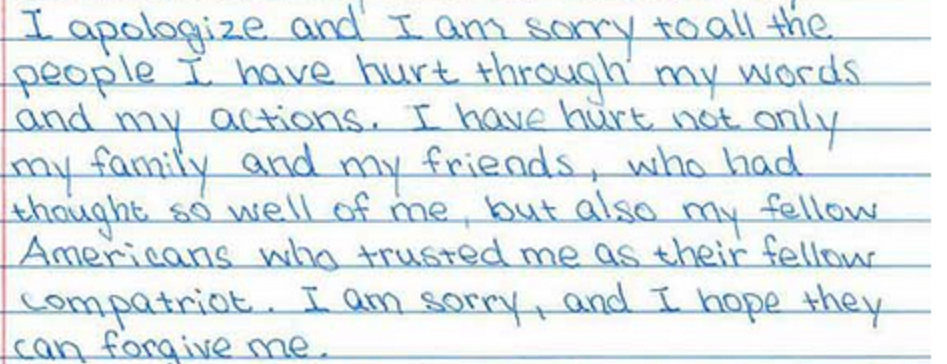 I apologize and I am sorry to all the
people I have hurt through my words
and my actions. I have hurt not only
my family and my friends, who had
thought so well of me, but also my fellow
Americans who trusted me as their fellow
compatriot. I am sorry, and I hope they
can forgive me.